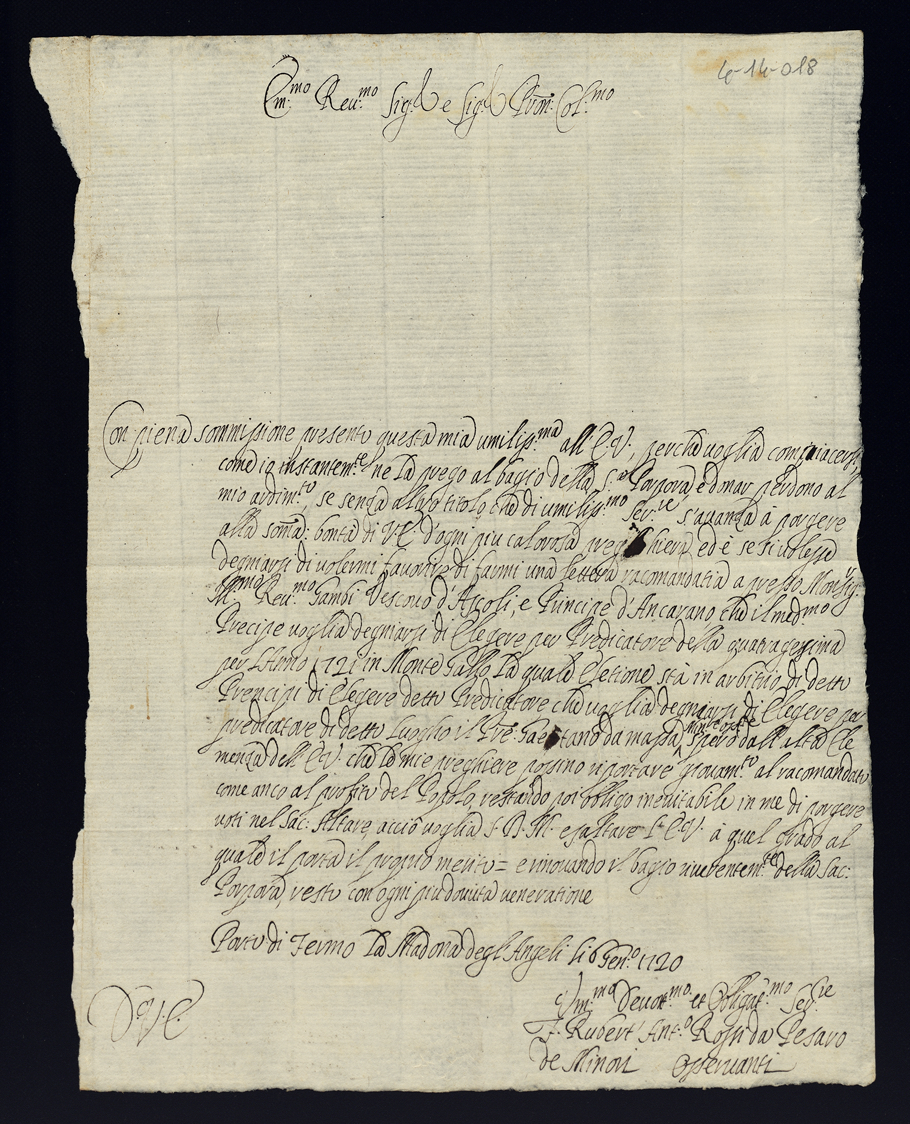 4-14-018
Em:mo Reu:mo Sig:r e Sig:r Pron: Col:mo
Con piena sommissione presento questa mia umiliss:ma all E.V., perche voglia compiacersi,
come io instantem:te ne la prego al bagio della S:a Porpora ed mar perdono al
mio ardim:to, se senza altro titolo che di umiliss:mo Ser:re s'auanza à porgere
alla soma: bontà di V.E. d'ogni piu calorosa preghiera, ed è se si volesse
degniarsi di volermi favorire di farmi una lettera racomandatia apresso Monsig:
Ill:mo Reu:mo Gambi Vescovo d'Ascoli, e Principe d'Ancarano che il med:mo
Precipe voglia degniarsi di Elegere per Predicatore della quatragesima
per L'Anno 1721 in Monte Gallo la quale Eletione stà in arbitrio di detto
Prencipi di Elegere detto Predicatore che voglia degniarsi di Elegere per
predicatore di detto Luogho il Pre: Gaetano da massa spero dall'alta Cle
menza dell'E.V. che le mie preghiere possino riportare giovam:to al racomandato
come anco al profito del Popolo, restando poi obligo inevitabile in me di porgere
voti nel Sac: Altare, acciò voglia S.D.M. esaltare L'E.V. à quel grado al
quale il porta il proprio merito = e rinovando il bagio riuerentem:te della Sac:
Porpora, resto con ogni piu douuta veneratione
Porto di Fermo La Madona degl'Angeli li 6 Gen:o 1720
D. V. E.
Vm:mo Deuot:mo et Obligat:mo Ser:re
F. Rubert' Ant:o Rossi da Pesaro
de Minori Osseruanti